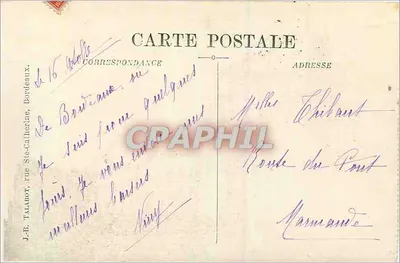 CARTE POSTALE
CORRESPONDANCE
ADRESSE
J.-R. TALABOT, rue Ste-Catherine, Bordeaux.
le 16 Octobre
De Bordeaux ou
je suis pour quelques
jours. Je vous envoie mes
meilleurs baisers
Melles Thibaut
Route du Pont
Marmande
CPAPHIL